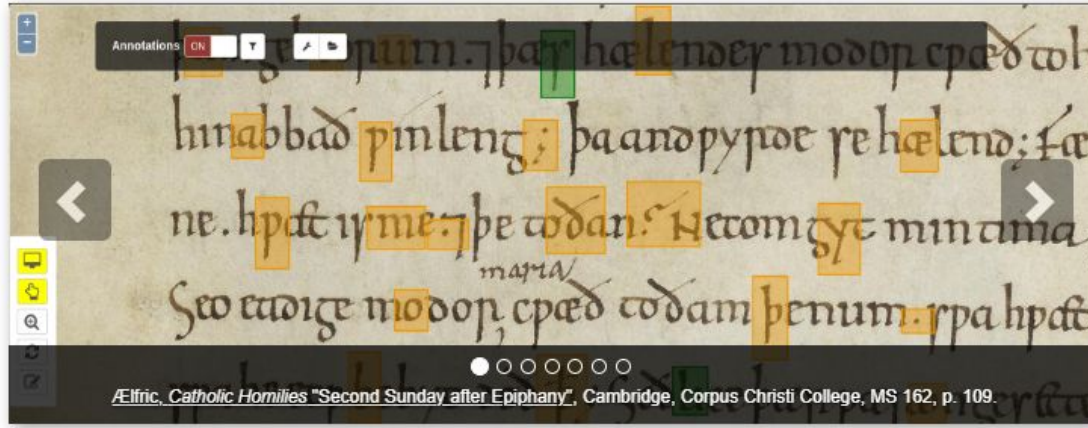 Annotations ON
⁊ þæs hælendes modor cƿæð to h
hi nabbað ƿin leng; þa andƿyrde se hælend; Fæ
ne. hƿæt is me. ⁊ þe to ðan? Ne com gyt min tima
maria
Seo eadige modor cƿæð to ðam þenum. sƿa hƿæt
Ælfric, Catholic Homilies "Second Sunday after Epiphany", Cambridge, Corpus Christi College, MS 162, p. 109.